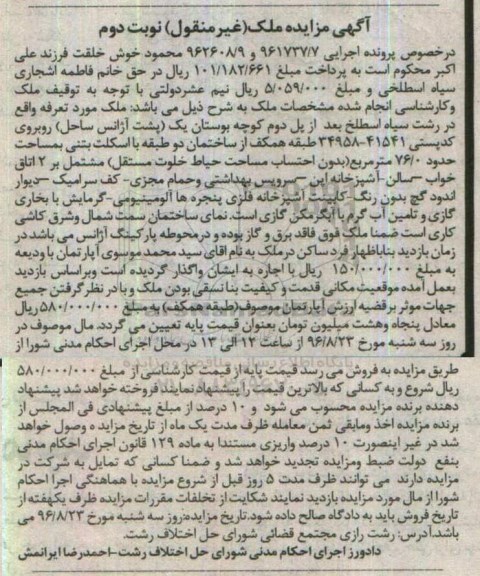 آگهی مزایده ملک(غیر منقول) نوبت دوم
درخصوص پرونده اجرایی ۹۶۱۷۳۷/۷ و ۹۶۲۶۰۸/۹ محمود خوش خلقت فرزند علی
اکبر محکوم است به پرداخت مبلغ ۱۰۱/۱۸۲/۶۶۱ ریال در حق خانم فاطمه اشجاری
سیاه اسطلخی و مبلغ ۵/۰۵۹/۰۰۰ ریال نیم عشردولتی با توجه به توقیف ملک
وکارشناسی انجام شده مشخصات ملک به شرح ذیل می باشد: ملک مورد تعرفه واقع
در رشت سیاه اسطلخ بعد از پل دوم کوچه بوستان یک (پشت آژانس ساحل) روبروی
کدپستی ۴۱۵۴۱-۳۴۹۵۸ طبقه همکف از ساختمان دو طبقه با اسکلت بتنی بمساحت
حدود ۷۶/۰ مترمربع(بدون احتساب مساحت حیاط خلوت مستقل) مشتمل بر ۲ اتاق
خواب –سالن-آشپزخانه اپن –سرویس بهداشتی وحمام مجزی- کف سرامیک –دیوار
اندود گچ بدون رنگ- کابینت آشپزخانه فلزی پنجره ها آلومینیومی-گرمایش با بخاری
گازی و تامین آب گرم با آبگرمکن گازی است. نمای ساختمان سمت شمال وشرق کاشی
کاری است ضمنا ملک فوق فاقد برق و گاز بوده و درمحوطه پارکینگ آژانس می باشد در
زمان بازدید بناباظهار فرد ساکن درملک به نام آقای سید محمد موسوی آپارتمان با ودیعه
به مبلغ ۱۵۰/۰۰۰/۰۰۰ ریال با اجاره به ایشان واگذار گردیده است وبراساس بازدید
بعمل آمده موقعیت مکانی قدمت و کیفیت بنا نسقی بودن ملک و با در نظر گرفتن جمیع
جهات موثر بر قضیه ارزش آپارتمان موصرف(طبقه همکف) به مبلغ ۵۸۰/۰۰۰/۰۰۰ ریال
معادل پنجاه وهشت میلیون تومان بعنوان قیمت پایه تعیین می گردد. مال موصوف در
روز سه شنبه مورخ ۹۶/۸/۲۳ از ساعت ۱۲ الی ۱۳ در محل اجرای احکام مدنی شورا از
طریق مزایده به فروش می رسد قیمت پایه از قیمت کارشناسی از مبلغ ۵۸۰/۰۰۰/۰۰۰
ریال شروع و به کسانی که بالاترین قیمت را پیشنهاد نمایند فروخته خواهد شد پیشنهاد
دهنده برنده مزایده محسوب می شود و ۱۰ درصد از مبلغ پیشنهادی فی المجلس از
برنده مزایده اخذ ومابقی ثمن معامله ظرف مدت یک ماه از تاریخ مزاید ه وصول خواهد
شد در غیر اینصورت ۱۰ درصد واریزی مستندا به ماده ۱۲۹ قانون اجرای احکام مدنی
بنفع دولت ضبط ومزایده تجدید خواهد شد و ضمنا کسانی که تمایل به شرکت در
مزایده دارند می توانند ظرف مدت ۵ روز قبل از شروع مزایده با هماهنگی اجرا احکام
شورا از مال مورد مزایده بازدید نمایند شکایت از تخلفات مقررات مزایده ظرف یکهفته از
تاریخ فروش باید به دادگاه صالح داده شود.تاریخ مزایده:روز سه شنبه مورخ ۹۶/۸/۲۳ می
باشد.آدرس: رشت رازی مجتمع قضائی شورای حل اختلاف رشت.
دادورز اجرای احکام مدنی شورای حل اختلاف رشت-احمدرضا ایرانمش